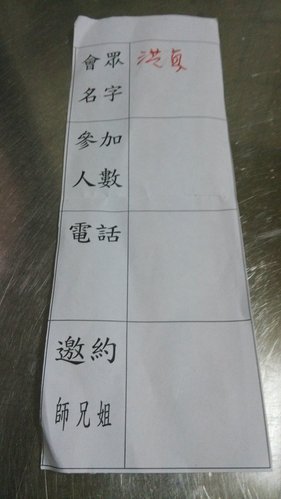 會眾
名字
洪貞
參加
人數
電話
邀約
師兄姐